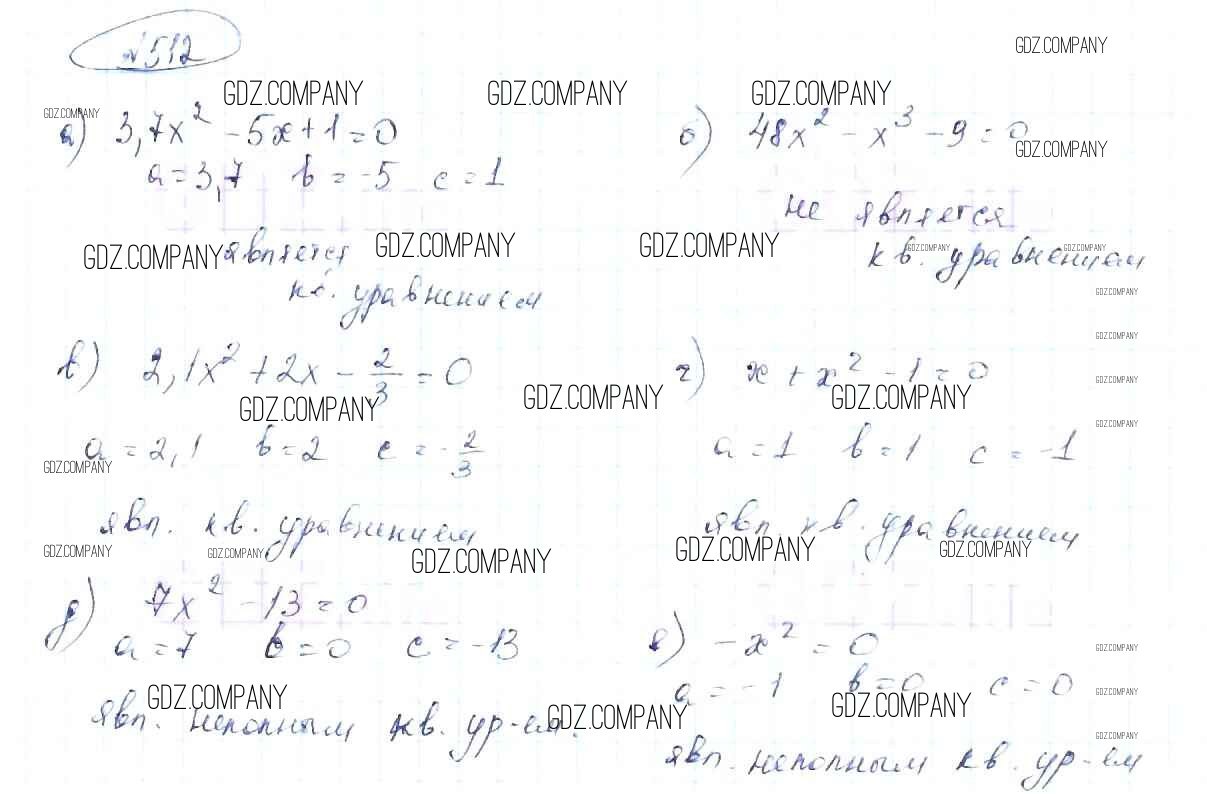 №512
GDZ.COMPANY
GDZ.COMPANY GDZ.COMPANY GDZ.COMPANY
GDZ.COMPANY
а) 3,7x² - 5x + 1 = 0
a = 3,7 b = -5 c = 1
является
кв. уравнением
GDZ.COMPANY GDZ.COMPANY GDZ.COMPANY
б) 48x² - x³ - 9 = 0
GDZ.COMPANY
не является
кв. уравнением
GDZ.COMPANY GDZ.COMPANY
GDZ.COMPANY
GDZ.COMPANY
в) 2,1x² + 2x - 2/3 = 0
GDZ.COMPANY GDZ.COMPANY
a = 2,1 b = 2 c = -2/3
GDZ.COMPANY
явл. кв. уравнением
г) x + x² - 1 = 0
GDZ.COMPANY
GDZ.COMPANY
GDZ.COMPANY
a = 1 b = 1 c = -1
явл. кв. уравнением
GDZ.COMPANY GDZ.COMPANY GDZ.COMPANY GDZ.COMPANY GDZ.COMPANY
д) 7x² - 13 = 0
a = 7 b = 0 c = -13
GDZ.COMPANY
явл. неполным кв. ур-ем.
GDZ.COMPANY
е) -x² = 0
GDZ.COMPANY
a = -1 b = 0 c = 0
GDZ.COMPANY
GDZ.COMPANY
GDZ.COMPANY
явл. неполным кв. ур-ем